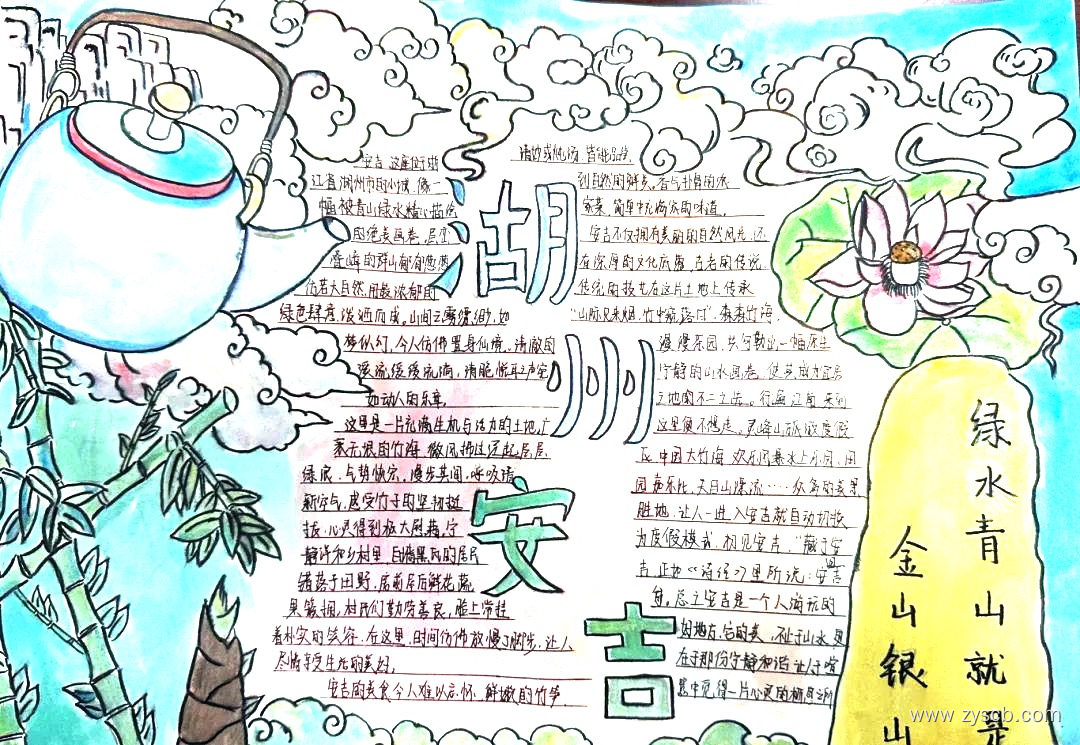 湖州安吉
安吉,这座位于浙
江省湖州市的小城,像一
幅被青山绿水精心描绘
的绝美画卷,层峦
叠嶂的群山郁郁葱葱
仿若大自然用最浓郁的
绿色肆意泼洒而成,山间云雾缭绕,如
梦似幻,令人仿佛置身仙境,清澈的
溪流缓缓流淌,清脆悦耳声宛
如动人的乐章,
这里是一片充满生机与活力的土地,广
袤无垠的竹海,微风拂过泛起层层
绿浪,气势恢宏,漫步其间,呼吸清
新空气,感受竹子的坚韧挺
拔,心灵得到极大慰藉,宁
静祥和乡村里,白墙黑瓦的居民
错落于田野,房前屋后鲜花蔬
果簇拥,村民们勤劳善良,脸上常挂
着朴实的笑容,在这里,时间仿佛放慢了脚步,让人
尽情享受生活的美好,
安吉的美食令人难以忘怀,鲜嫩的竹笋,
清炒或炖汤,皆能品尝
到自然的鲜美,香气扑鼻的农
家菜,简单中充满浓的味道,
安吉不仅拥有美丽的自然风光,还
有深厚的文化底蕴,古老的传说
传统的技艺在这片土地上传承
"山际见来烟,竹中窥落日",森森竹海,
漫漫茶园,共勾勒出一幅原生
宁静的山水画卷,使其成为宜居
之地的不二之选。行遍江南,来到
这里便不想走,灵峰山旅游度假
区,中国大竹海,欢乐风暴水上乐园,田
园嘉乐比,天目山漂流……众多的美景
胜地,让人一进入安吉就自动切换
为度假模式,初见安吉,"藏于安
吉,正如《诗经》里所说:安且吉
兮,总之安吉是一个人淘玩的
好地方,它的美,不止于山水,更
在于那份宁静和谐,让人于喧
嚣中觅得一片心灵的栖身之所
绿水青山就是
金山银山
www.zyscb.com